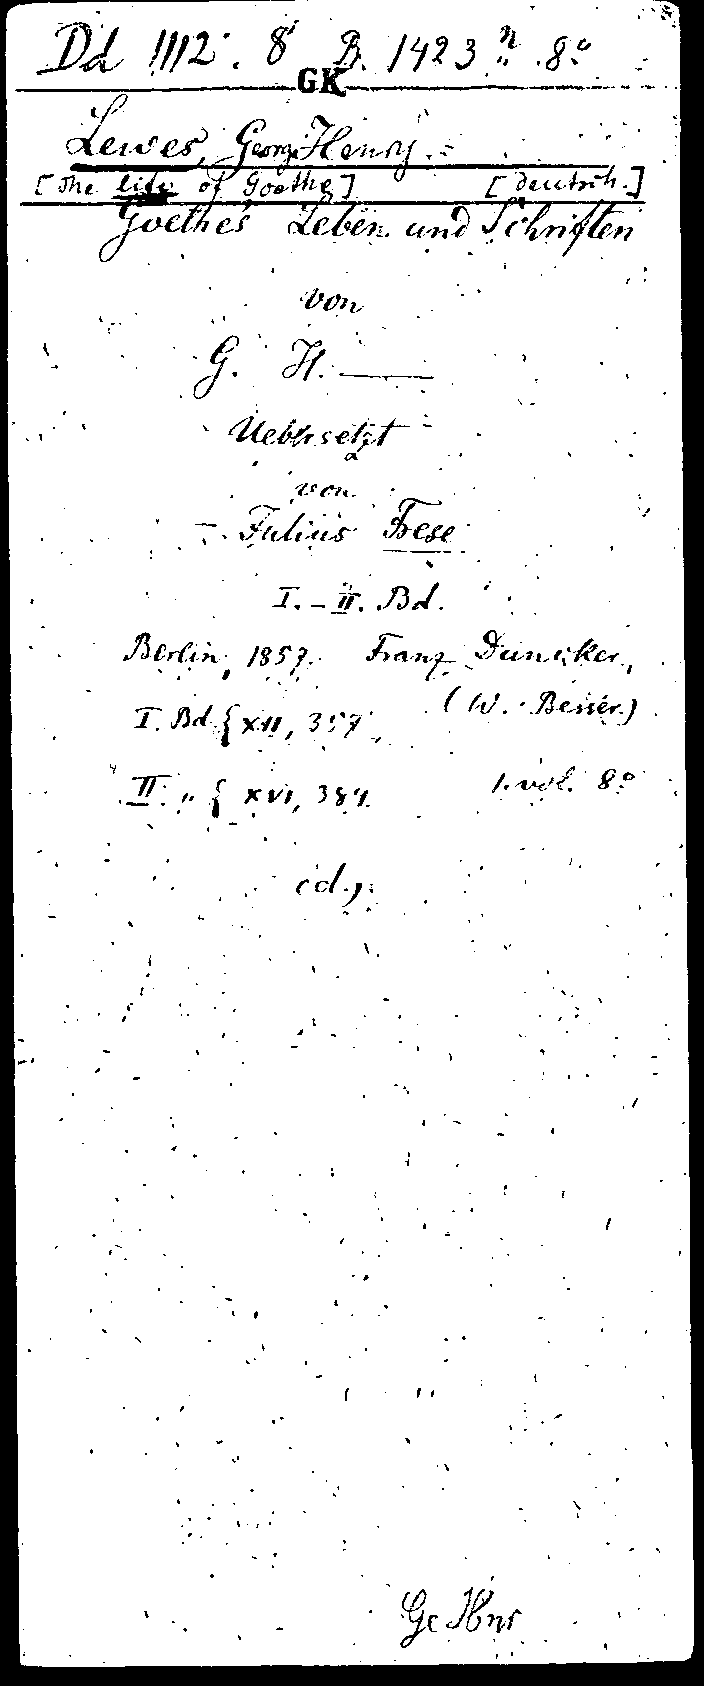 Dd 1112. 8 B. 1423 n 8°
GK
Lewes, Georg Henry.
[The life of Goethe] [deutsch.]
Goethe's Leben und Schriften
von
G. H. —
Uebersetzt
von
Julius Frese
I. - II. Bd.
Berlin, 1857. Franz Duncker,
(W. Besser.)
I. Bd. { XII, 357.
II. „ { XVI, 384. 1. vol. 8°
cd.